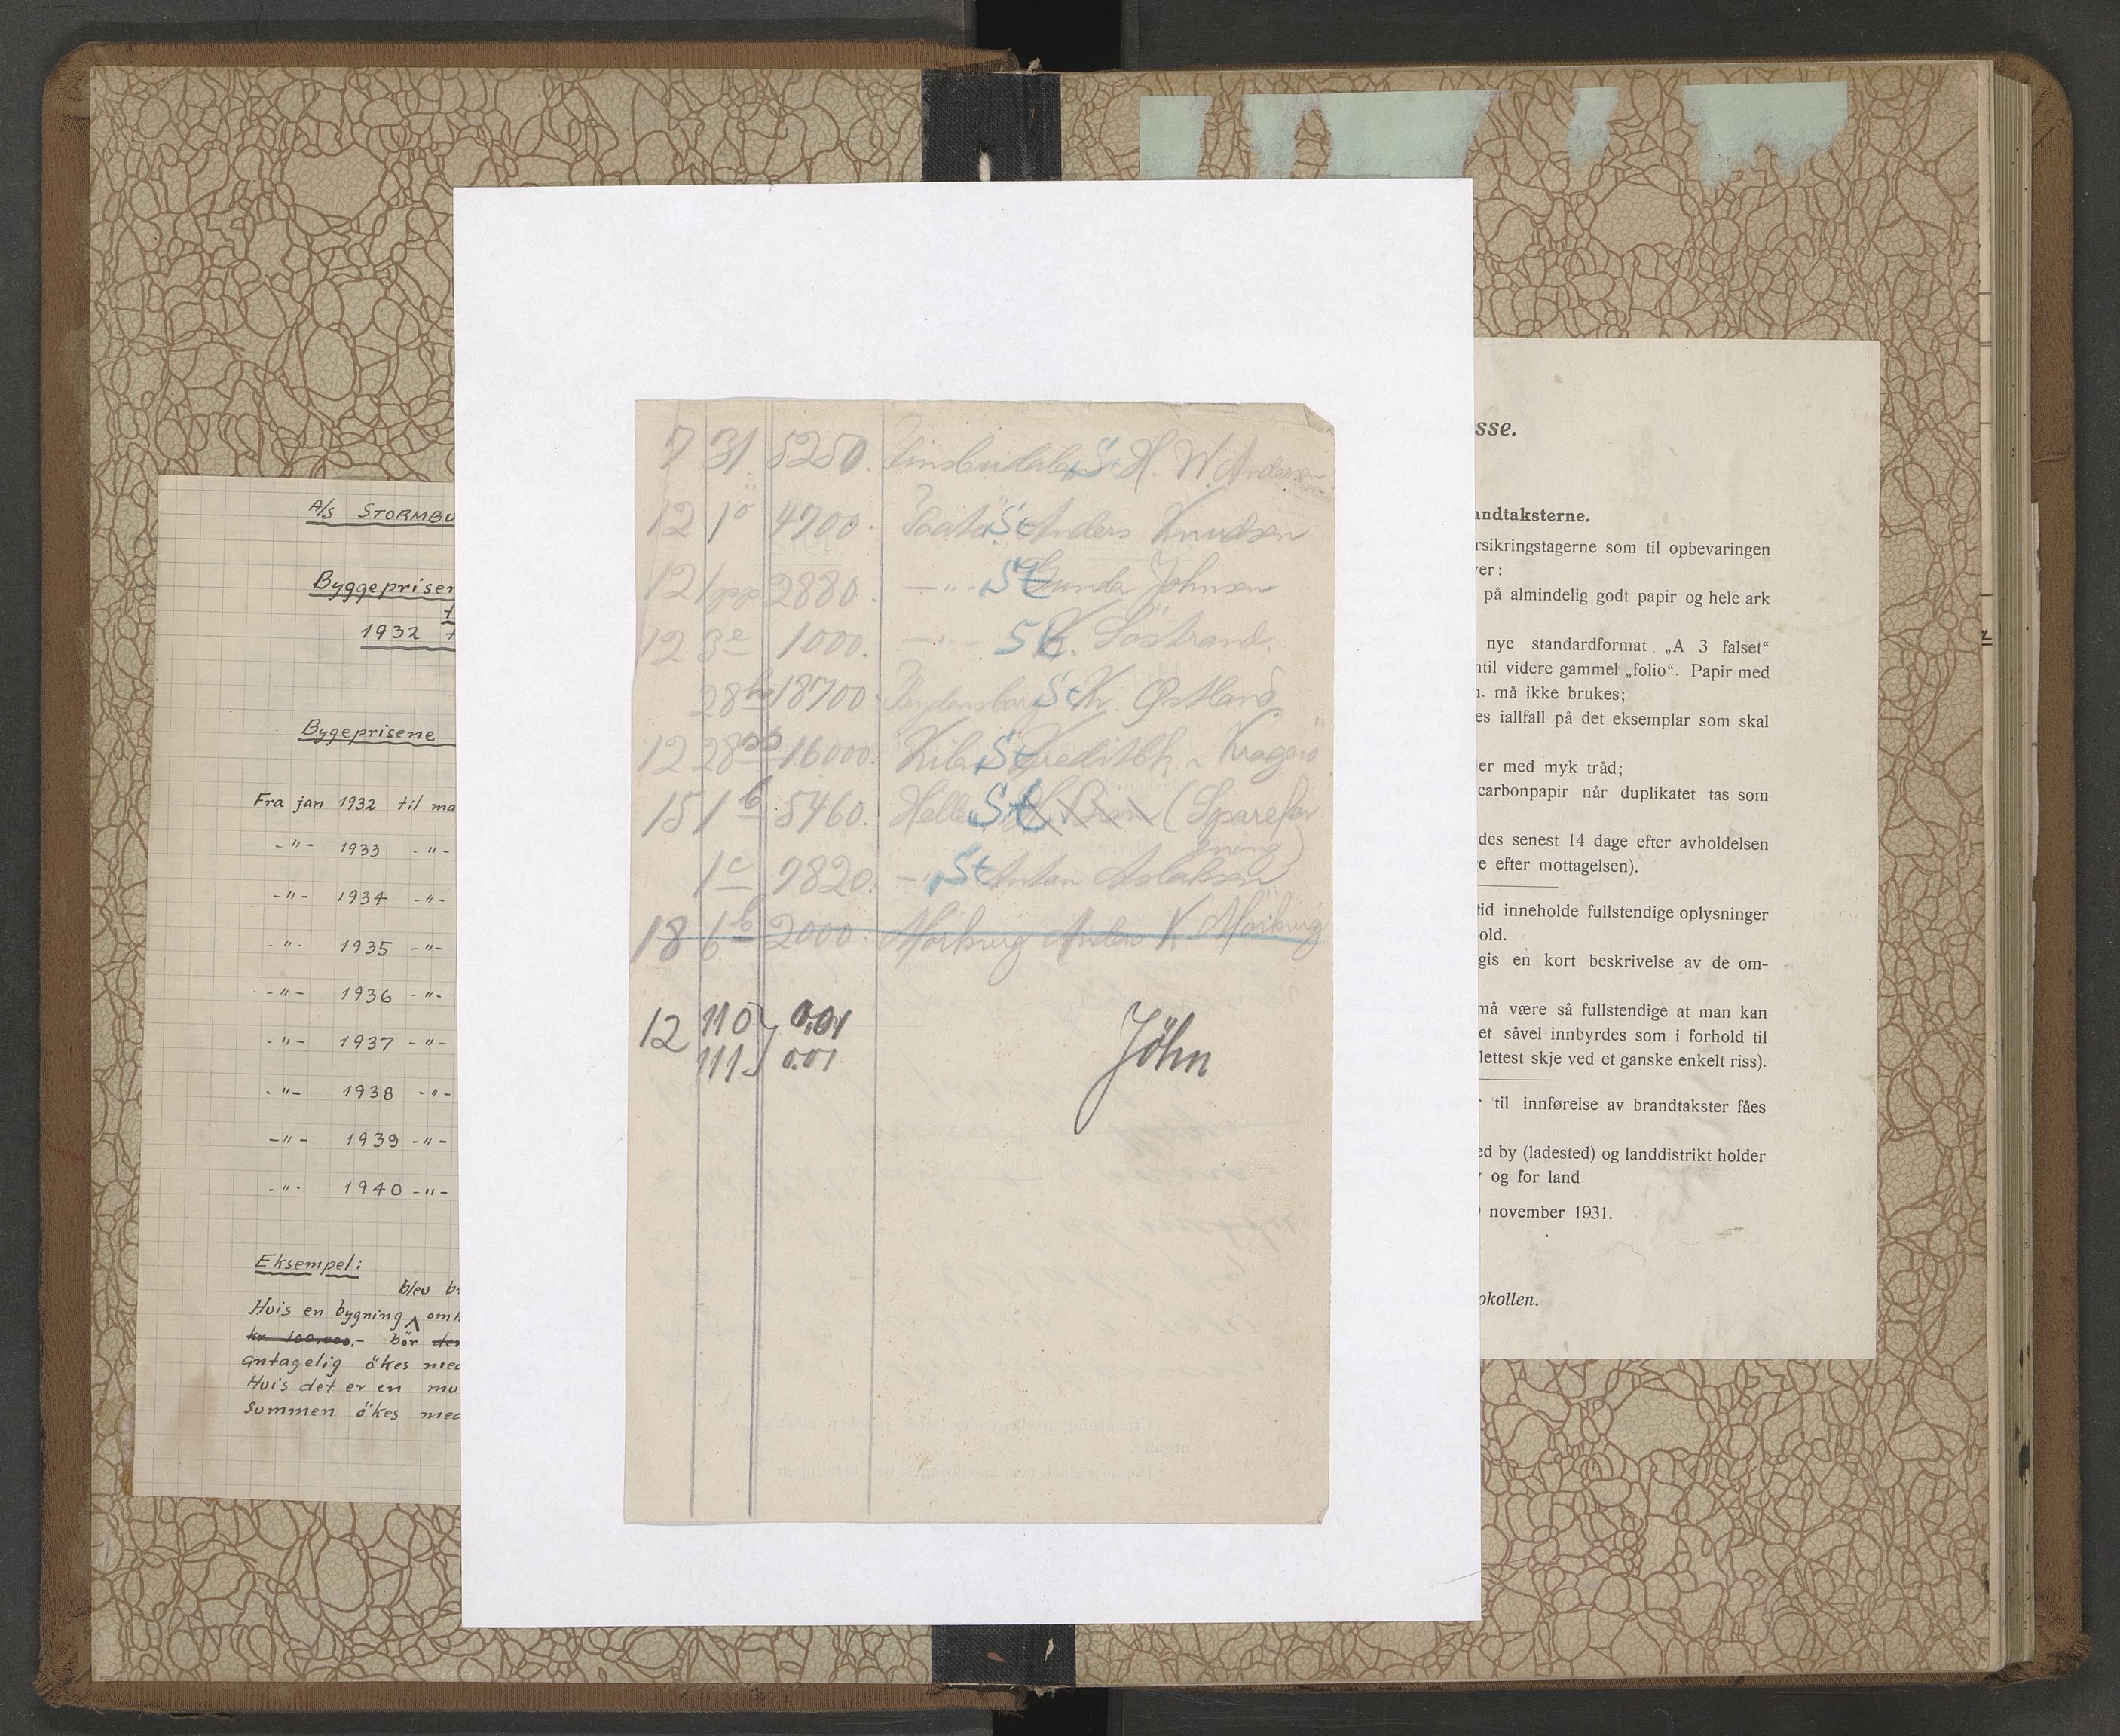 A/S STORMBU
Byggepriser
1932
Bygeprisene
Fra jan 1932 til ma
-"- 1933 -"-
-"- 1934 -"-
-"- 1935 -"-
-"- 1936 -"-
-"- 1937 -"-
-"- 1938 -"-
-"- 1939 -"-
-"- 1940 -"-
Eksempel:
blev b
Hvis en bygning omh
kr. 100.000.- bör den
antagelig ökes med
Hvis det er en mu
summen ökes med
7 31 5250. St H. W. Andersen
12 1ö 4700. St Anders Knudsen
12 1pp 2880. -"- St Gunda Johnsen
12 3e 1000. -"- St K. Söstrand.
28 18700 St Kr. Østland
12 28 16000. St Kreditbk. Kragerö
15 1b 5460. Helle St (Sparefor
ening)
1c 9820. -"- St Anton Aslaksen
18 6b 2000. Mörkvig Anders K. Mörkvig
12 110 0.01 Jöhn
111 0.01
sse.
andtaksterne.
rsikringstagerne som til opbevaringen
er:
på almindelig godt papir og hele ark
nye standardformat „A 3 falset“
ntil videre gammel „folio“. Papir med
. må ikke brukes;
es iallfall på det eksemplar som skal
er med myk tråd;
carbonpapir når duplikatet tas som
des senest 14 dage efter avholdelsen
e efter mottagelsen).
tid inneholde fullstendige oplysninger
old.
gis en kort beskrivelse av de om-
må være så fullstendige at man kan
et såvel innbyrdes som i forhold til
lettest skje ved et ganske enkelt riss).
til innførelse av brandtakster fåes
ed by (ladested) og landdistrikt holder
og for land.
november 1931.
okollen.